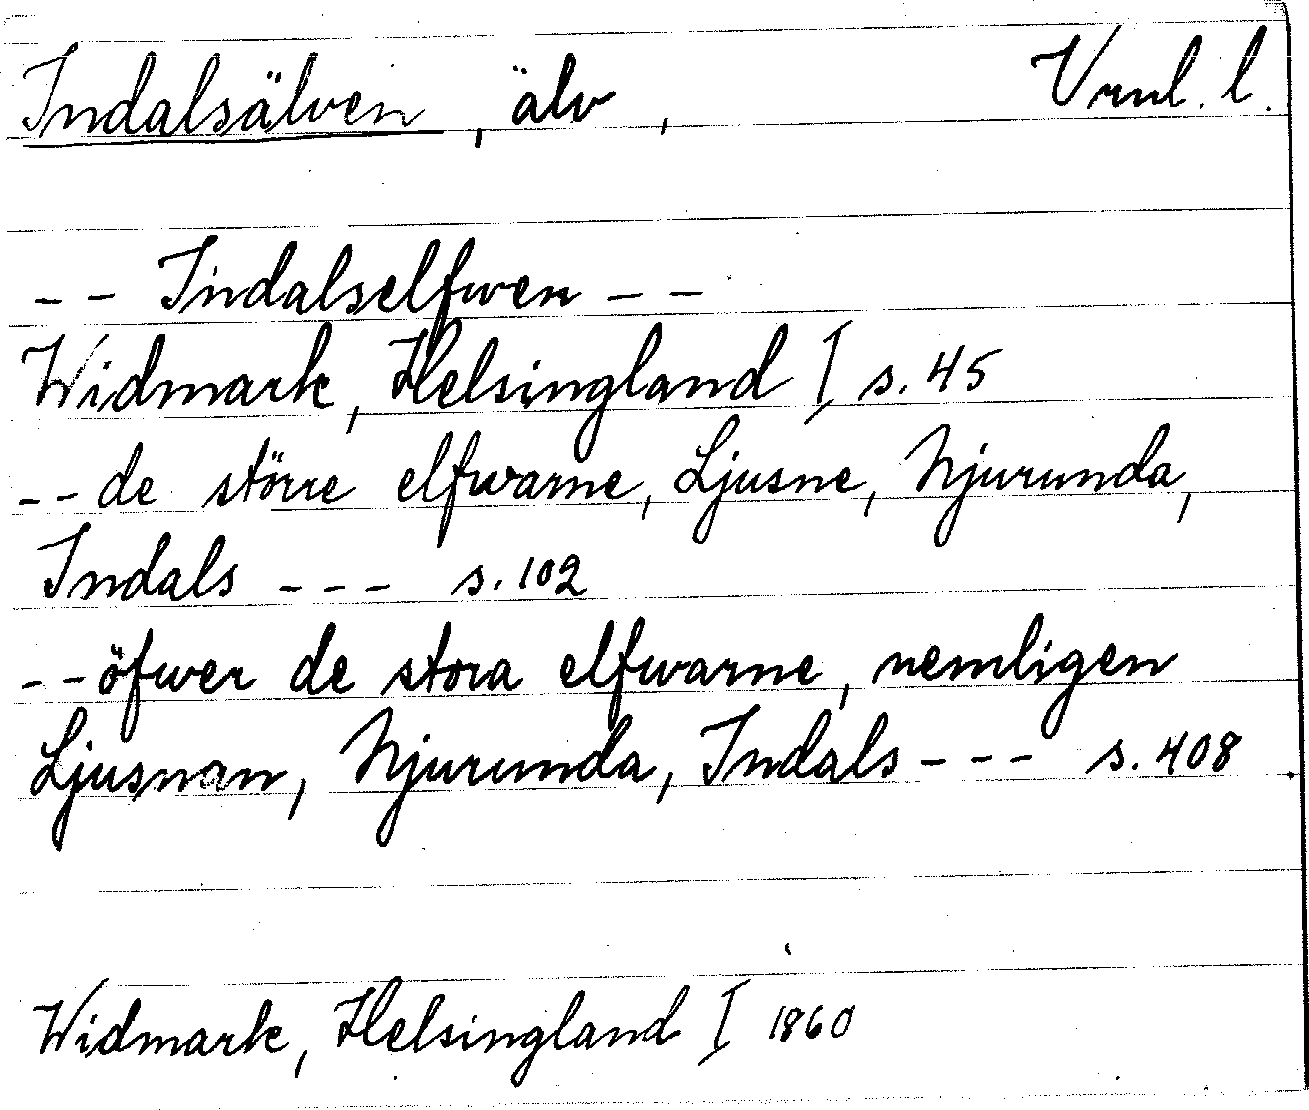 Indalsälven, älv, Vrnl. l.
-- Indalselfwen --
Widmark, Helsingland I, s. 45
-- de större elfwarne, Ljusne, Njurunda,
Indals --- s. 102
-- öfwer de stora elfwarne, nemligen
Ljusnan, Njurunda, Indals --- s. 408
Widmark, Helsingland I 1860